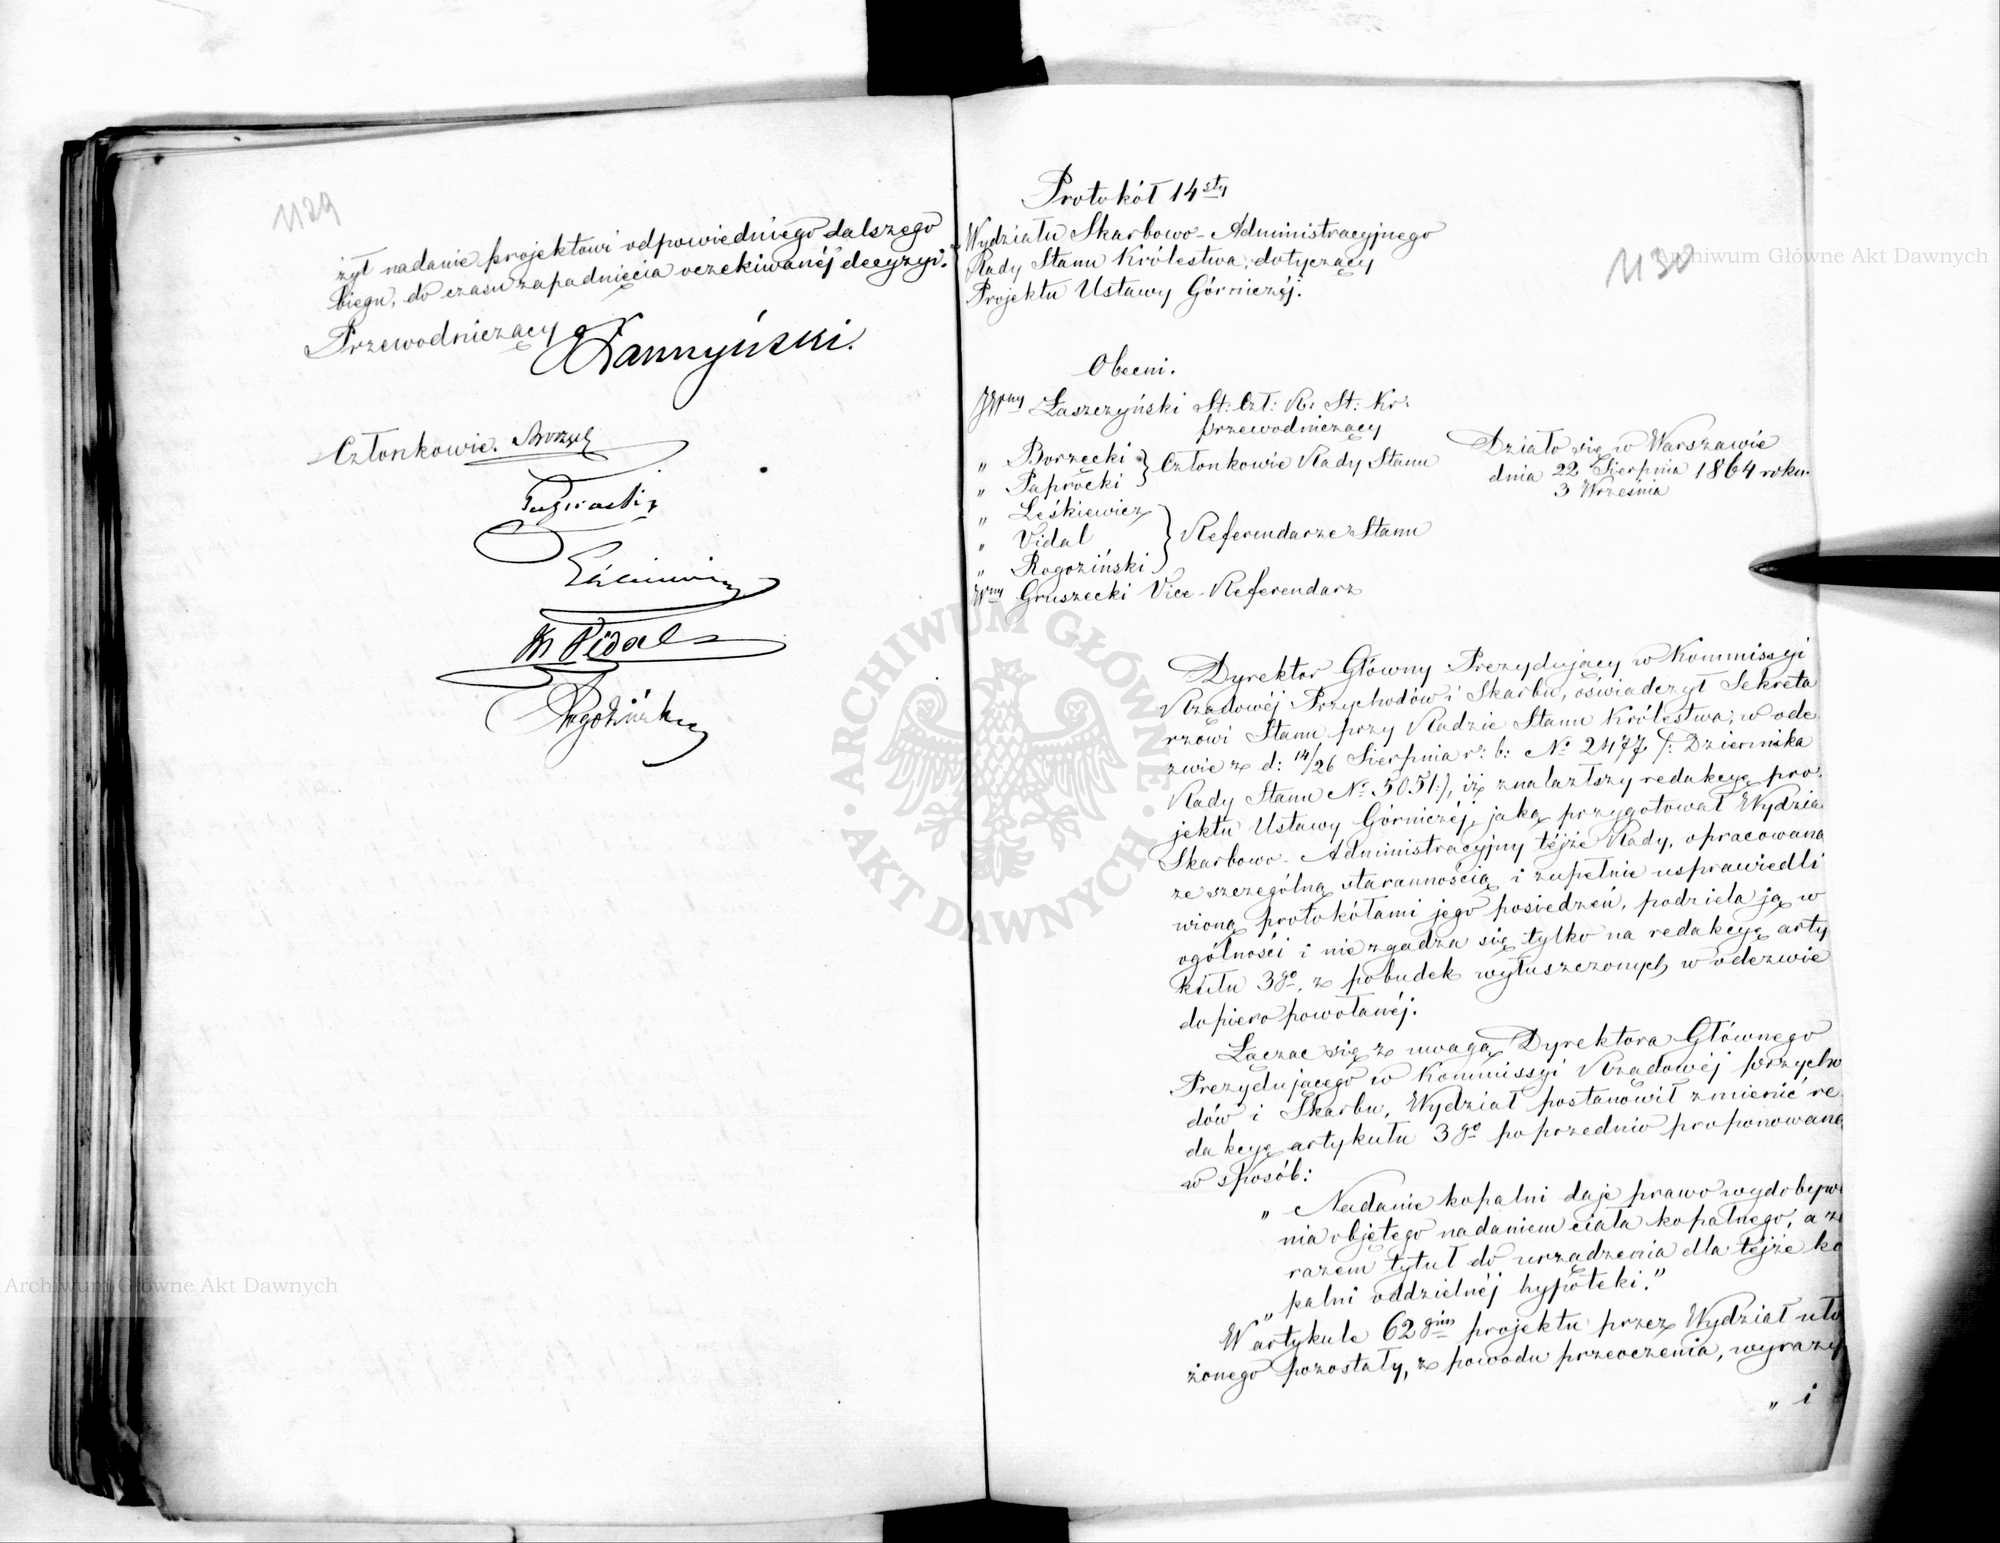 1129
żył nadanie projektowi odpowiedniego dalszego
biegu, do czasu zapadnięcia oczekiwanéj decyzyi."
Przewodniczący Łaszczyński.
Członkowie.
Vidal
Rogoziński
Protokół 14sty
Wydziału Skarbowo-Administracyjnego
Rady Stanu Królestwa, dotyczący
Projektu Ustawy Górniczéj.
1130
Obecni.
JJWny Łaszczyński St: Czł: R: St: Kr:
przewodniczący
" Borzęcki } Członkowie Rady Stanu
" Paprocki
" Leśkiewicz
" Vidal } Referendarze Stanu
" Rogoziński
JWny Gruszecki Vice-Referendarz
Działo się w Warszawie
dnia 22 Sierpnia 1864 roku.
3 Września
Dyrektor Główny Prezydujący w Kommissyi
Rządowéj Przychodów i Skarbu, oświadczył Sekreta
rzowi Stanu przy Radzie Stanu Królestwa, w ode
zwie z d: 14/26 Sierpnia r: b: No 2477 /: Dziennika
Rady Stanu No 5051:/, iż znalazłszy redakcyę pro
jektu Ustawy Górniczéj, jaką przygotował Wydzia
Skarbowo-Administracyjny téjże Rady, opracowaną
ze szczególną starannością i zupełnie usprawiedli
wioną protokółami jego posiedzeń, podziela ją w
ogólności i nie zgadza się tylko na redakcyę arty
kułu 3go, z pobudek wyłuszczonych w odezwie
dopiero powołanéj.
Łącząc się z uwagą Dyrektora Głównego
Prezydującego w Kommissyi Rządowéj Przycho
dów i Skarbu, Wydział postanowił zmienić re
dakcyę artykułu 3go poprzednio proponowaną
w sposób:
" Nadanie kopalni daje prawo wydobywa
nia objętego nadaniem ciała kopalnego, a za
razem tytuł do urządzenia dla téjże ko
" palni oddzielnéj hypoteki."
W artykule 62gim projektu przez Wydział uło
żonego pozostały, z powodu przeoczenia, wyrazy
" i
Archiwum Główne Akt Dawnych
Archiwum Główne Akt Dawnych
ARCHIWUM GŁÓWNE AKT DAWNYCH